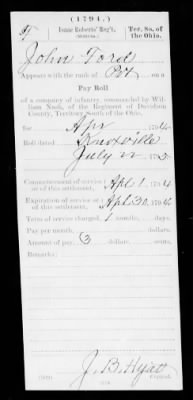 (1794.)
F | Isaac Roberts' Reg't, | Ter. So. of the Ohio.
(MILITIA.)
John Ford
Appears with the rank of Pvt. on a
Pay Roll
of a company of infantry, commanded by William Nash, of the Regiment of Davidson County, Territory South of the Ohio,
for Apr, 1794.
Roll dated Knoxville
July 22, 179
Commencement of service or of this settlement, } Apl 1, 1794
Expiration of service or of this settlement, } Apl. 30, 1794
Term of service charged, 1 months, days.
Pay per month, dollars.
Amount of pay, 3 dollars, cents.
Remarks:
J. B. Hyatt
Copyist.